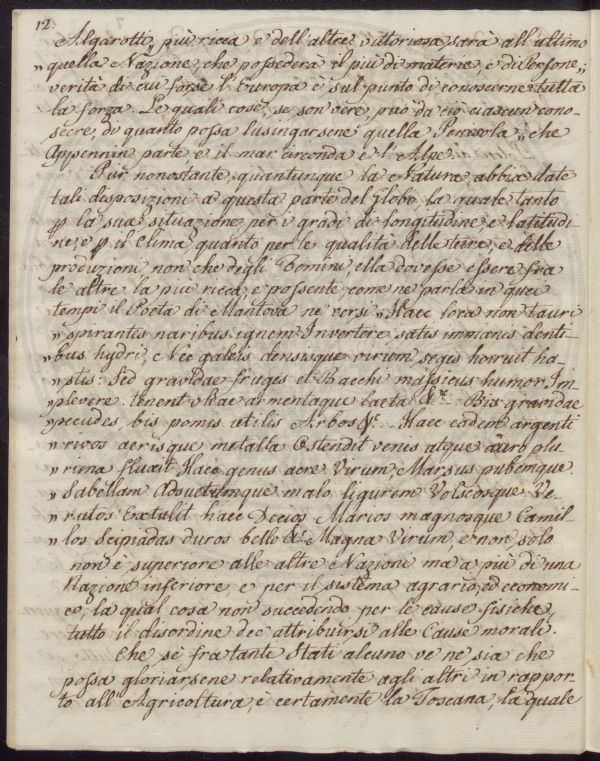 12.
Algarotti „ più ricca e dell'altre vittoriosa sarà all'ultimo
„ quella Nazione, che possederà il più di materie, e di braone„
verità di cui forse l'Europa è sul punto di conoscerne tutta
la forza. Le quali cose, se son vere, può da ciò ciascun cono-
scere, di quanto possa lusingarsene quella Penisola „ che
Appennin parte e il mar circonda e l'Alpe.
Pur nonostante, quantunque la Natura abbia date
tali disposizioni a questa parte del Globo, la quale tanto
p la sua situazione per i gradi di longitudine, e latitudi-
ne, e p il Clima, quanto per le qualità delle terre, e delle
produzioni non che degli Uomini, ella dovesse essere fra
le altre la più ricca, e possente, come ne parla in quei
tempi il Poeta di Mantova ne' versi „ Haec loca non tauri
„ spirantis naribus ignem Invertere satis immanis denti-
„ bus hydri, Nec galeis densisque virum seges horruit ha-
„ stis: Sed gravidae fruges et Bacchi massicus humor Im-
plevere. tenent oleae armentaque laeta &c. Bis gravidae
„ pecudes, bis pomis utilis Arbos &c. Haec eadem argenti
„ rivos aerisque metalla Ostendit venis atque auro plu
„ rima fluxit Haec genus acre Virum, Marsus pubemque
„ Sabellam Adsuetumque malo ligurem Volscosque Ve-
„ rutos Extulit haec Decios Marios magnosque Camil-
„ los Scipiadas duros bello &c. Magna Virum, e non solo
non è superiore alle altre Nazioni ma a più di una
Nazione inferiore, e per il sistema agrario, ed economi-
co, la qual cosa non succedendo per le cause fisiche,
tutto il disordine dee attribuirsi alle Cause morali.
Che se fra tanti Stati alcuno ve ne sia che
possa gloriarsene relativamente agli altri in rappor-
to all'Agricoltura, è certamente la Toscana, la quale